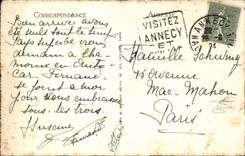 CORRESPONDANCE
Bien arrivé avons
été seuls tout le temps
Pays superbe irons
demain a Cha
monix en Auto
Car. Fernand
se joint a moi
pour vous embrasser
tous les trois
Fernand
VISITEZ
ANNECY
ET
ANNECY
Famille Schwing
16 Avenue
Mac-Mahon
Paris